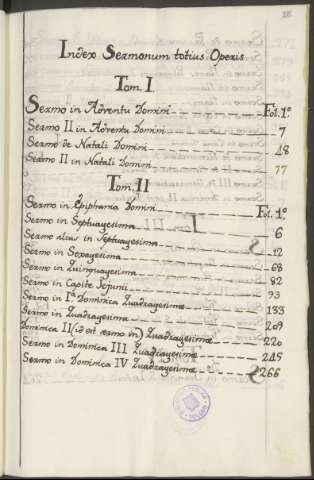 Index Sermonum totius Operis
Tom. I
Sermo in Adventu Domini Fol. 1º
Sermo II in Adventu Domini 7
Sermo de Natali Domini 48
Sermo II in Natali Domini 77
Tom. II
Sermo in Epiphania Domini Fol. 1º
Sermo in Septuagesima 6
Sermo alius in Septuagesima 12
Sermo in Sexagesima 68
Sermo in Quinquagesima 82
Sermo in Capite Jejunii 93
Sermo in Iª Dominica Quadragesimæ 133
Sermo in Quadragesima 209
Dominica II (id est sermo in) Quadragesimæ 220
Sermo in Dominica III Quadragesimæ 245
Sermo in Dominica IV Quadragesimæ 266